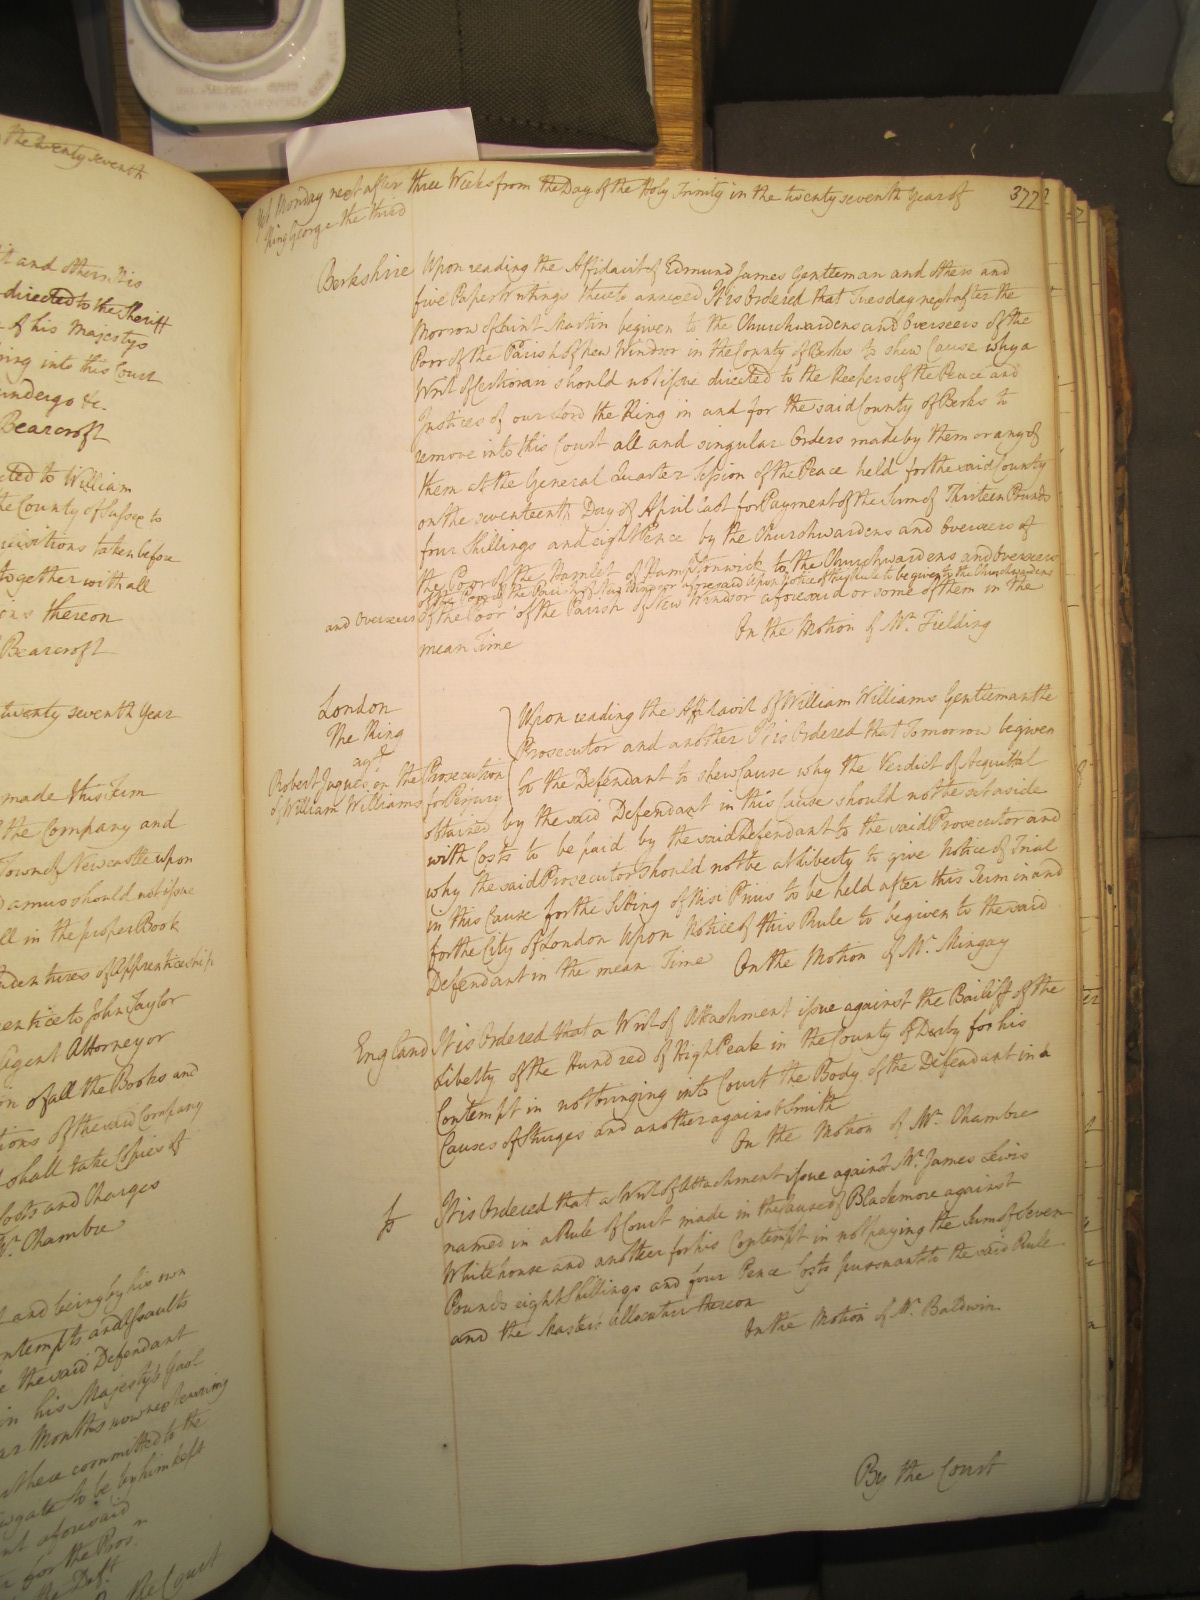 the twenty seventh
t and others It is
directed to the Sheriff
of his Majestys
ing into this Court
undergo &c.
Bearcroft
cted to William
he County of Sussex to
uisitions taken before
together with all
ons thereon
Bearcroft
twenty seventh Year
made this Term
the Company and
Town of Newcastle upon
Damus should not issue
ll in the proper Book
Indentures of Apprenticeship
entice to John Taylor
Agent Attorney or
on of all the Books and
tions of the said Company
shall take Copies of
Costs and Charges
Mr. Chambre
t and being by his own
ontempts and Assaults
e the said Defendant
in his Majestys Gaol
ar Months now next ensuing
there committed to the
wgate to be by him kept
nt aforesaid
for the Prosn
the Deft
the Court
Monday next after three Weeks from the Day of the Holy Trinity in the twenty seventh Year of
King George the third
377
Berkshire Upon reading the Affidavit of Edmund James Gentleman and others and
five Paper Writings thereto annexed It is Ordered that Tuesday next after the
Morrow of Saint Martin be given to the Churchwardens and Overseers of the
Poor of the Parish of New Windsor in the County of Berks to shew Cause why a
Writ of Certiorari should not issue directed to the Keepers of the Peace and
Justices of our Lord the King in and for the said County of Berks to
remove into this Court all and singular Orders made by them or any of
them at the General Quarter Session of the Peace held for the said County
on the seventeenth Day of April last for Payment of the Sum of Thirteen Pounds
four Shillings and eight Pence by the Churchwardens and Overseers of
the Poor of the Hamlet of Hampton wick to the Churchwardens and Overseers
of the Poor of the Parish of New Windsor aforesaid Upon Notice of this Rule to be given to the Churchwardens
and Overseers of the Poor of the Parish of New Windsor aforesaid or some of them in the
mean Time
On the Motion of Mr. Fielding
London
The King
agt
Robert Jaques on the Prosecution
of William Williams for Perjury
Upon reading the Affidavit of William Williams Gentleman the
Prosecutor and another It is Ordered that Tomorrow be given
to the Defendant to shew Cause why the Verdict of Acquittal
obtained by the said Defendant in this Cause should not be set aside
with Costs to be paid by the said Defendant to the said Prosecutor and
why the said Prosecutor should not be at Liberty to give Notice of Trial
in this Cause for the Sitting of Nisi Prius to be held after this Term in and
for the City of London Upon Notice of this Rule to be given to the said
Defendant in the mean Time
On the Motion of Mr. Mingay
England It is Ordered that a Writ of Attachment issue against the Bailiff of the
Liberty of the Hundred of High Peak in the County of Derby for his
Contempt in not bringing into Court the Body of the Defendant in a
Causes of Sturges and another against Smith
On the Motion of Mr. Chambre
It is Ordered that a Writ of Attachment issue against Mr. James Lewis
named in a Rule of Court made in the Cause of Blackmore against
Whitehouse and another for his Contempt in not paying the Sum of Seven
Pounds eight Shillings and four Pence Costs pursuant to the said Rule
and the Masters Allocatur thereon
On the Motion of Mr. Baldwin
By the Court